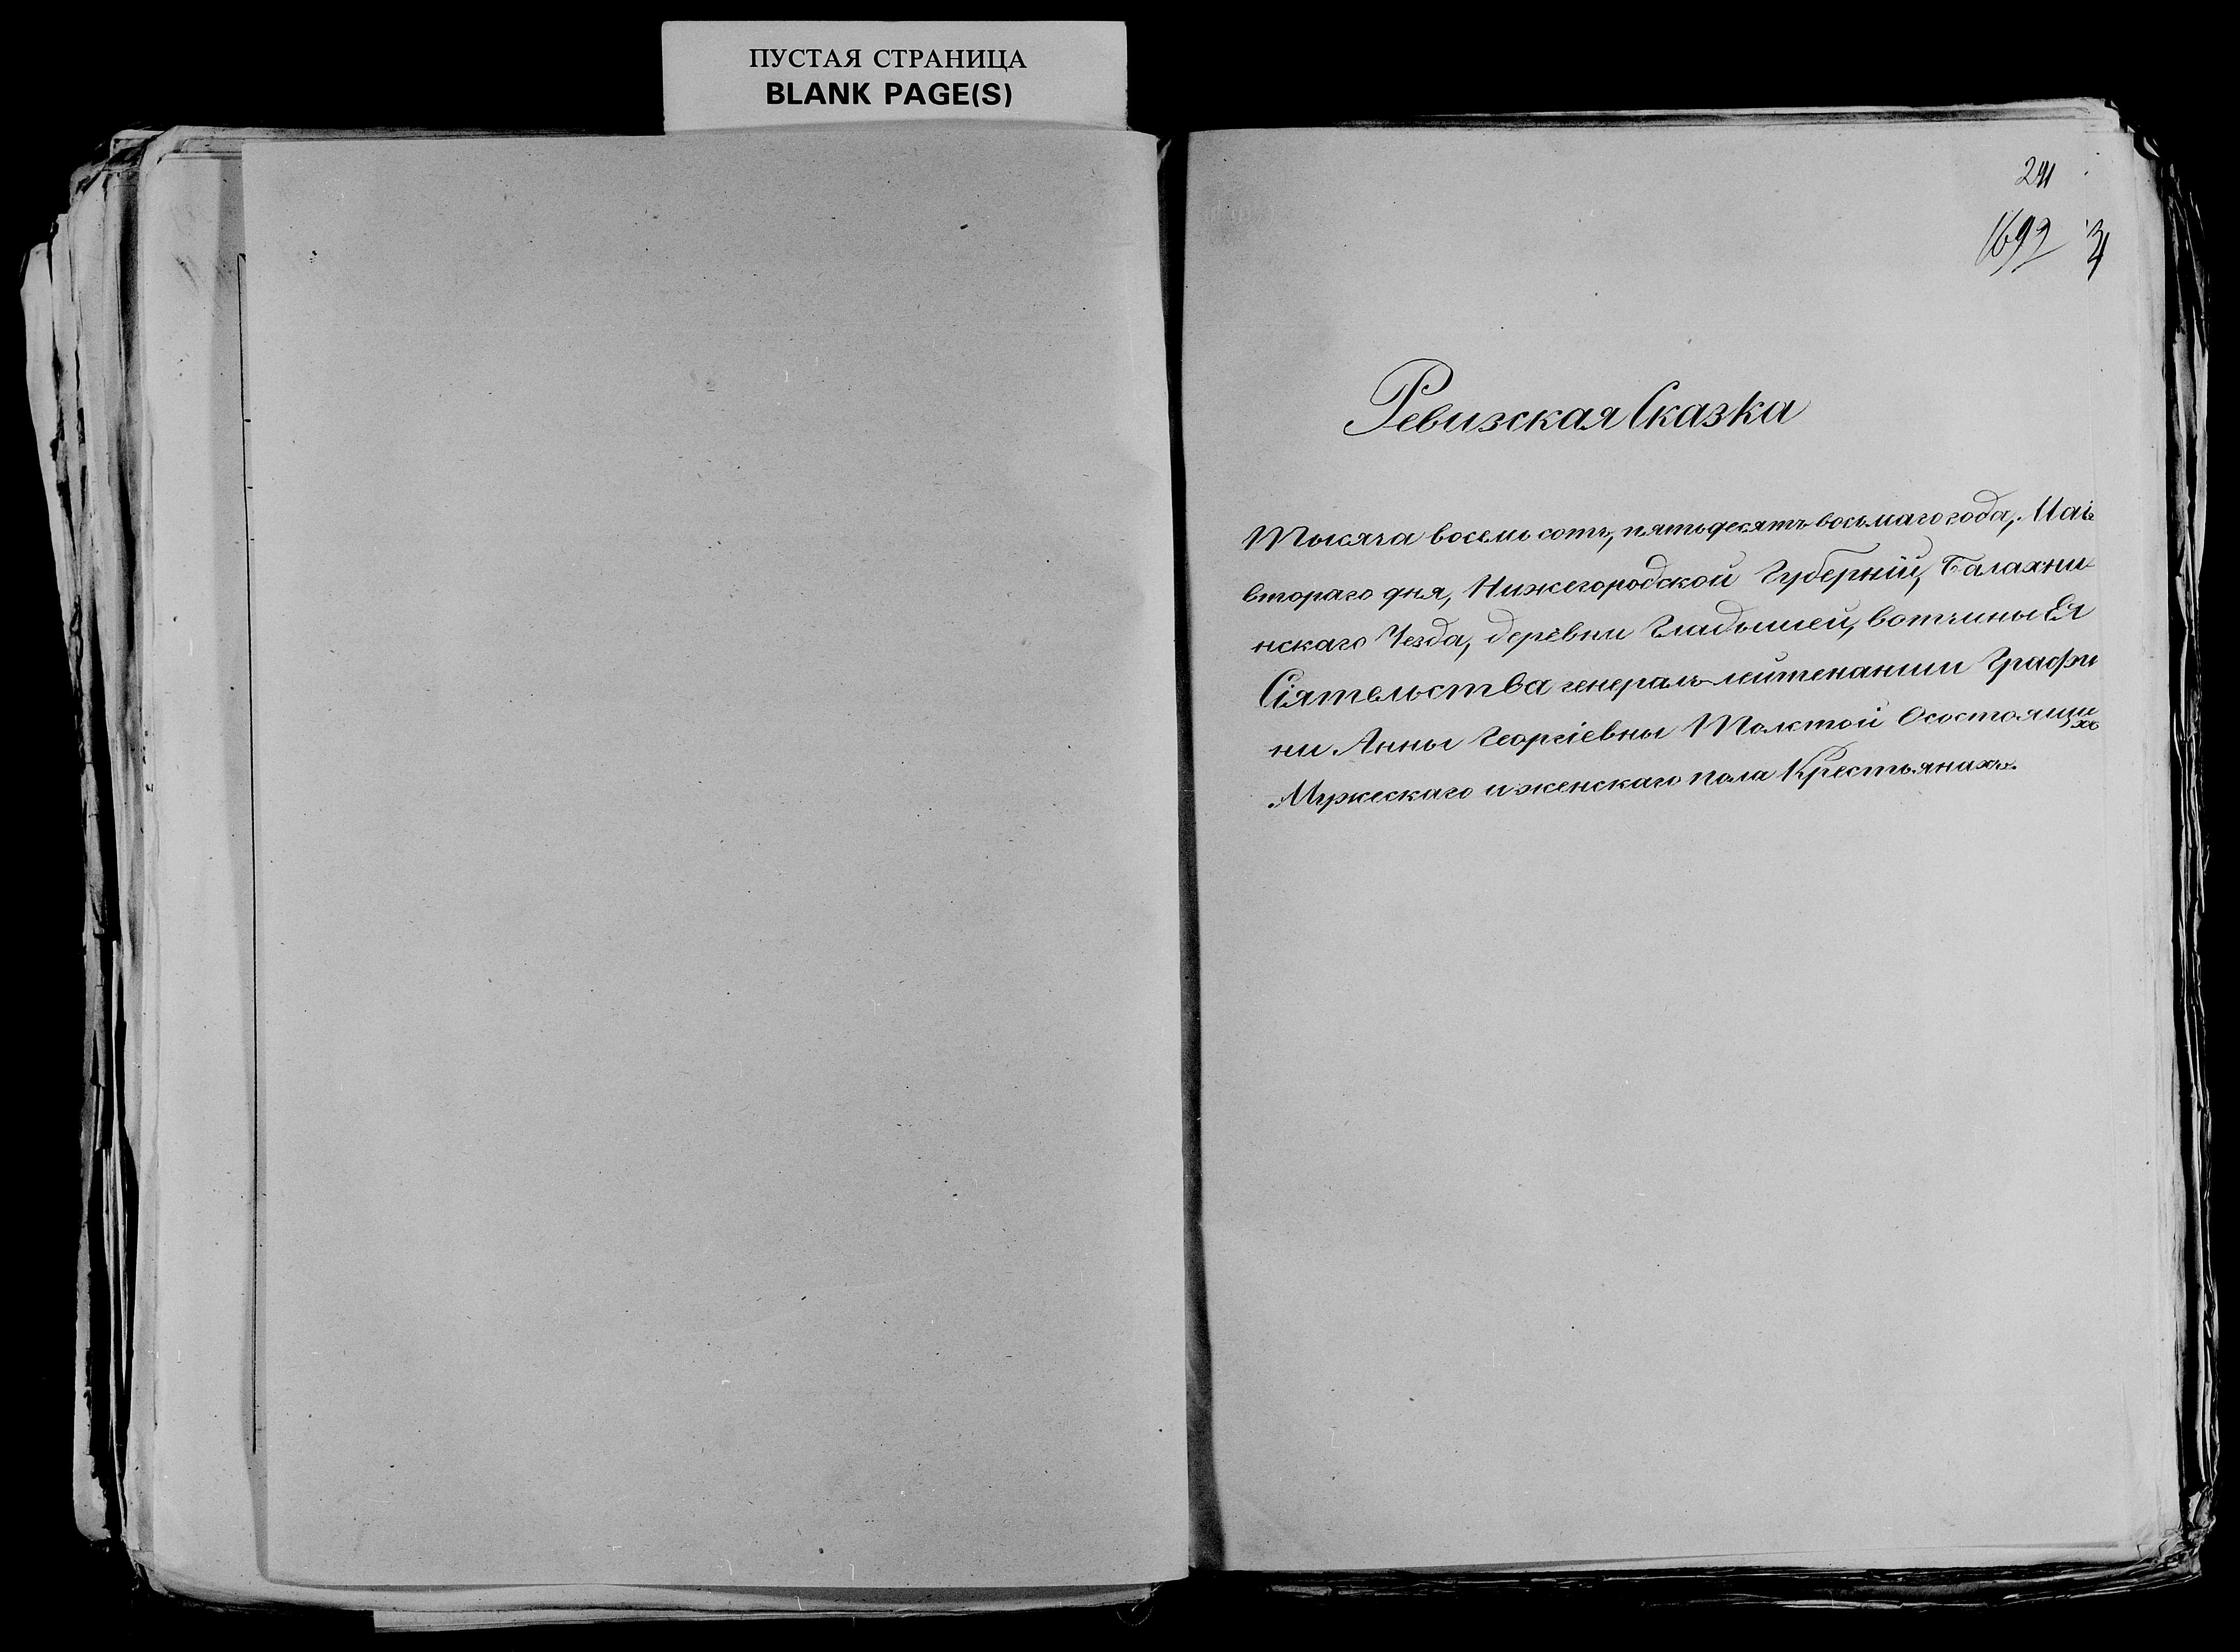 ПУСТАЯ СТРАНИЦА
BLANK PAGE(S)
241
1692
Ревизская Сказка
Тысяча восемь сотъ, пятьдесятъ восьмаго года, Маія
втораго дня, Нижегородской Губерніи, Балахни-
нскаго Уезда, деревни Гладышей, вотчины Ея
Сіятельства генералъ-лейтенанши Графи
ни Анны Георгіевны Толстой Осостоящихъ
Мужескаго и женскаго пола Крестьянахъ.